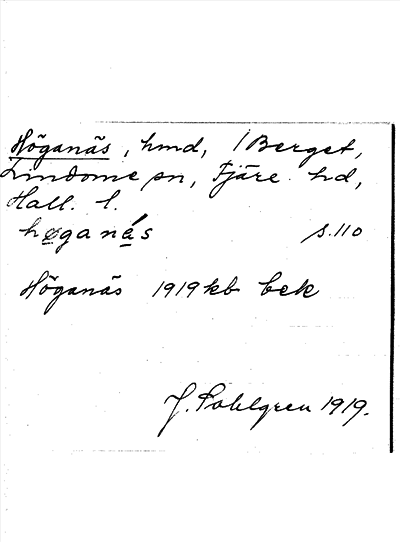 Höganäs, hmd, / Berget,
Lindome sn, Fjäre hd,
Hall. l.
høganás s. 110
Höganäs 1919 kb bek
J. Sahlgren 1919.